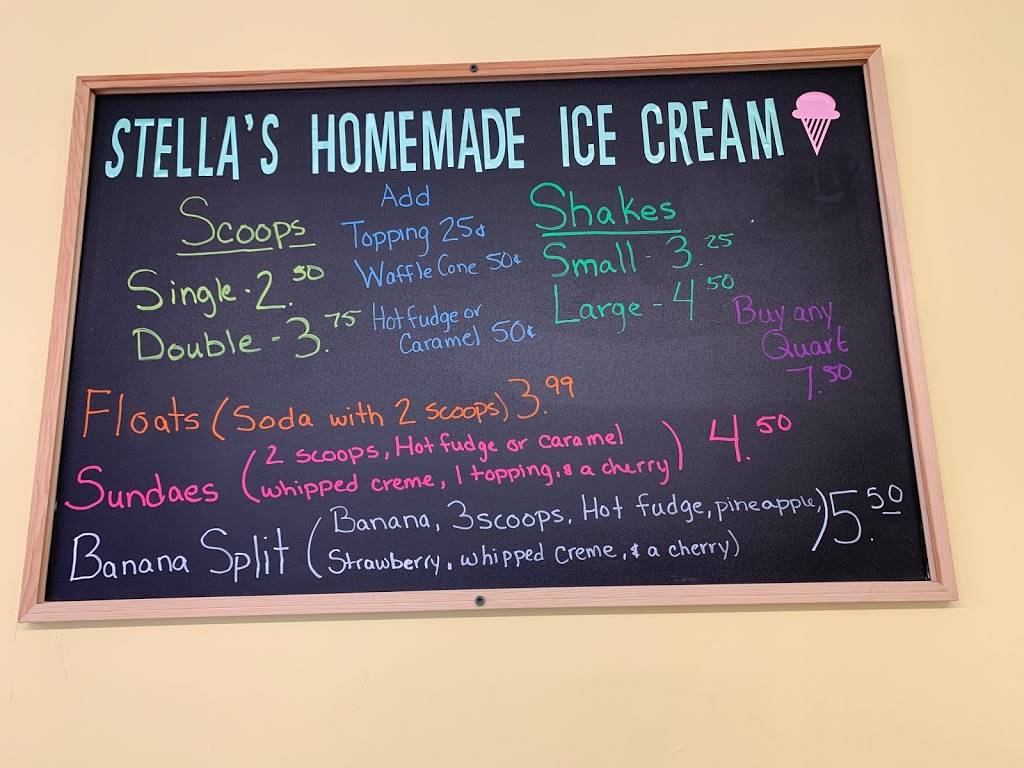 STELLA'S HOMEMADE ICE CREAM
Scoops
Single - 2.50
Double - 3.75
Add
Topping 25¢
Waffle Cone 50¢
Hot fudge or
Caramel 50¢
Shakes
Small - 3.25
Large - 4.50
Buy any
Quart
7.50
Floats (Soda with 2 scoops) 3.99
Sundaes (2 scoops, Hot fudge or caramel
whipped creme, 1 topping, & a cherry) 4.50
Banana Split (Banana, 3 scoops, Hot fudge, pineapple,
Strawberry, whipped creme, & a cherry)) 5.50